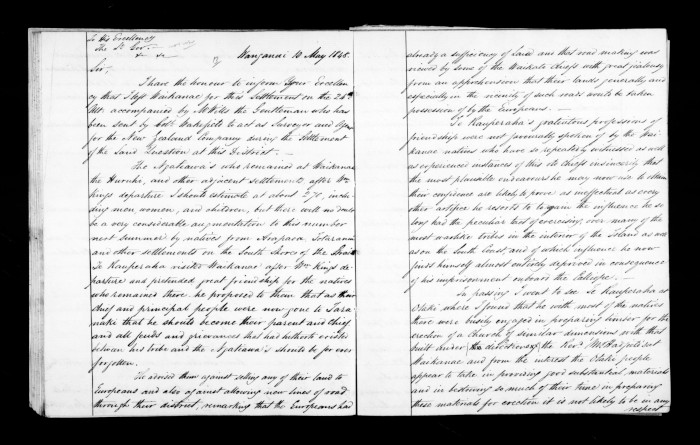 To His Excellency
The Lt. Gov.
&c &c
Wanganui 10 May 1848.
Sir,
I have the honour to inform Your Excellen
cy that I left Waikanae for this Settlement on the 26th
Ulto. accompanied by Mr. Wills the Gentleman who has
been sent by Coll. Wakefield to act as Surveyor and Agent
for the New Zealand Company during the Settlement
of the Land Question at this District.
The Ngatiawa's who remained at Waikanae
the Huruhi, and other adjacent settlements after Wm.
Kings departure I should estimate at about 270, inclu
ding men, women, and children, but there will no doubt
be a very considerable augmentation to this number
next Summer by natives from Arapaoa Totaranui
and other settlements on the South Shores of the Straits
Te Rauperaha visited Waikanae after Wm. Kings de
parture and pretended great friendship for the natives
who remained there. he proposed to them that as their
Chief and principal people were now gone to Tara
nake that he should become their parent and Chief
and all feuds and grievances that had hitherto existed
between his tribe and the Ngatiawa's should be for ever
forgotten.
He advised them against selling any of their land to
Europeans and also against allowing new lines of road
through their district, remarking that the Europeans had
already a sufficiency of Land and that road making was
viewed by some of the Waikato Chiefs with great jealousy
from an apprehension that their lands generally and
especially in the vicinity of such roads would be taken
possession of by the Europeans.
Te Rauperaha's gratuitous professions of
friendship were not favourably spoken of by the Wai
kanae natives who have so repeatedly witnessed as well
as experienced instances of this old chiefs insincerity that
the most plausible endeavours he may now use to obtain
their confidence are likely to prove as ineffectual as every
other artifice he resorts to to regain the influence he so
long had the peculiar tact of exercising over many of the
most warlike tribes in the interior of the Island as well
as on the South Coast and of which influence he now
finds himself almost entirely deprived in consequence
of his imprisonment onboard the Calliope.
In passing I went to see Te Rauperaha at
Otaki where I found that he with most of the natives
there were busily engaged in preparing timber for the
erection of a Church of similar dimensions with that
built under the directions of the Revd. Mr. Hadfield at
Waikanae and from the interest the Otaki people
appear to take in providing good substantial materials
and in bestowing so much of their time in preparing
these materials for erection it is not likely to be in any
respect